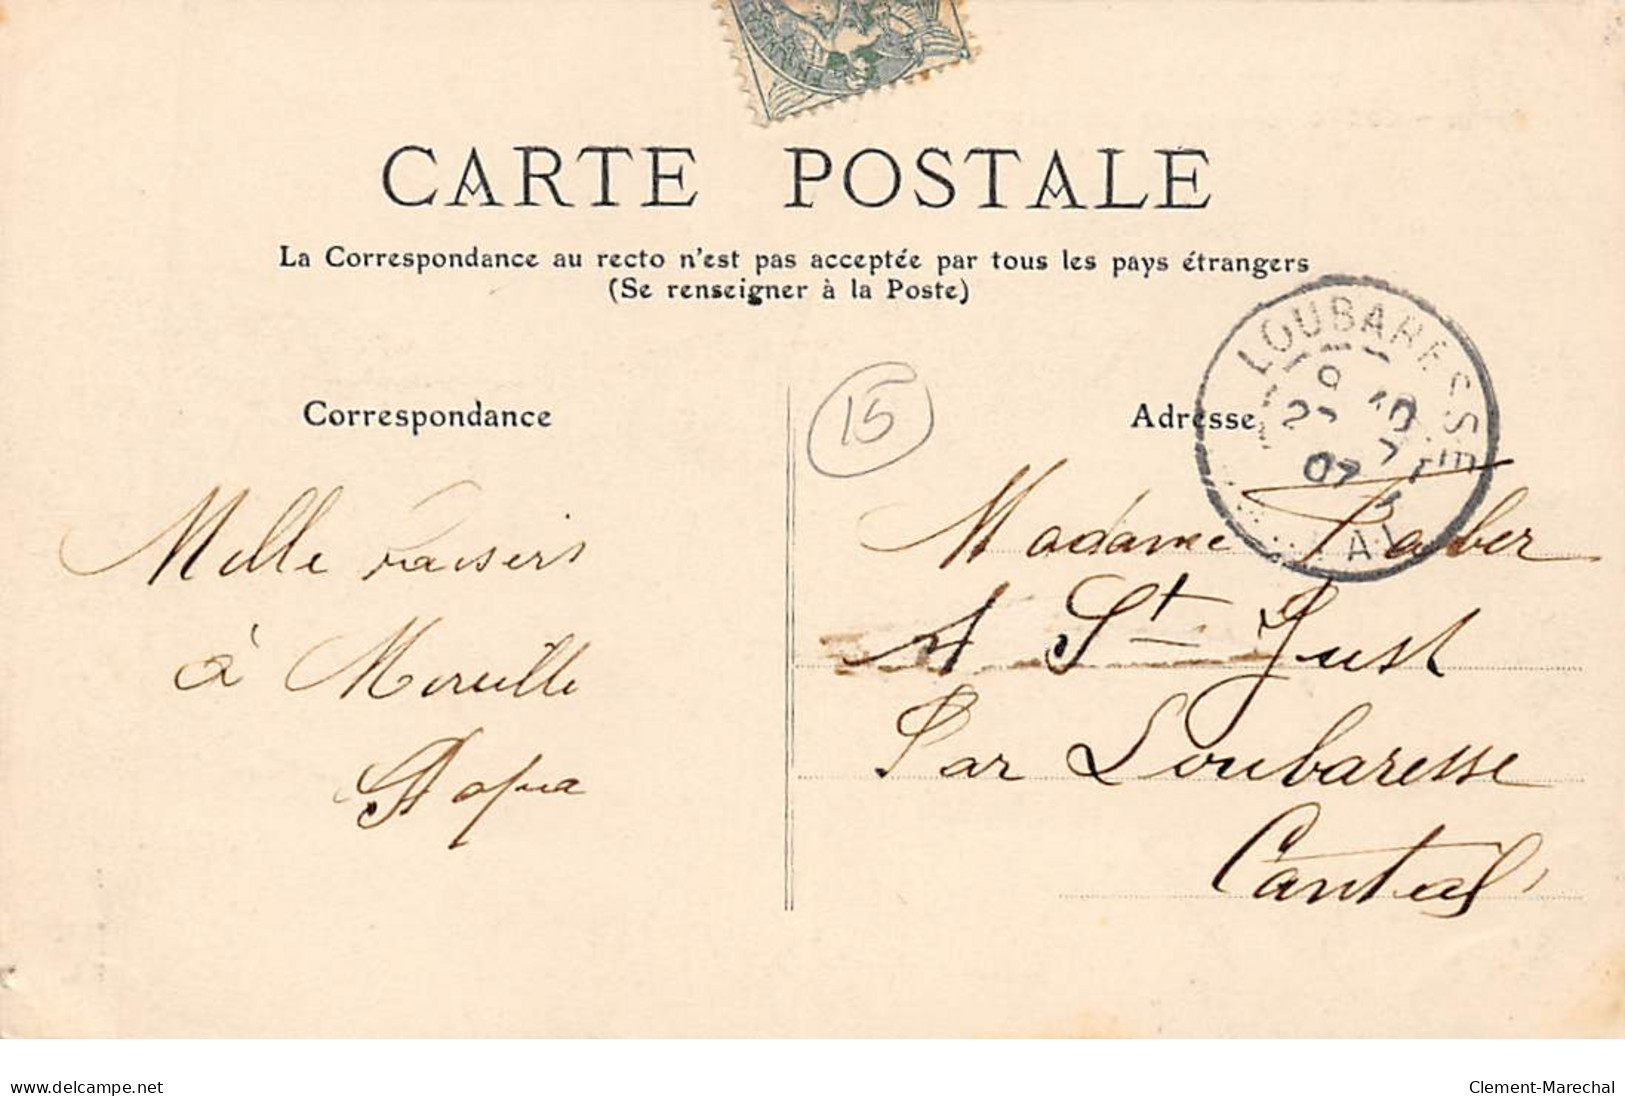 CARTE POSTALE
La Correspondance au recto n'est pas acceptée par tous les pays étrangers
(Se renseigner à la Poste)
LOUBARESSE
07
Correspondance
15
Adresse
Mille baisers
à
Papa
Madame
A St Just
Par Loubaresse
Cantal
www.delcampe.net
Clement-Marechal